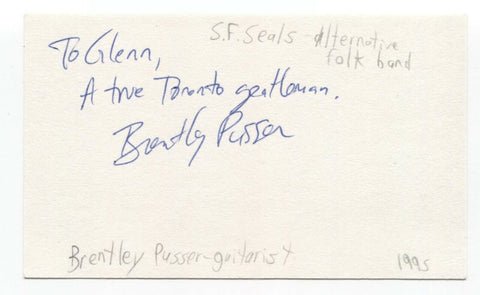 S.F. Seals - alternative
folk band
To Glenn,
A true Toronto gentleman.
Brentley Pusser
Brentley Pusser-guitarist
1995